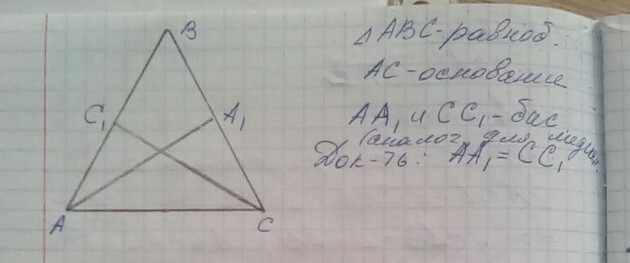 B
△ABC-равноб.
AC-основание
C₁
A₁
AA₁ и CC₁-бис
(аналог. для медиан.
Док-ть: AA₁=CC₁
A
C